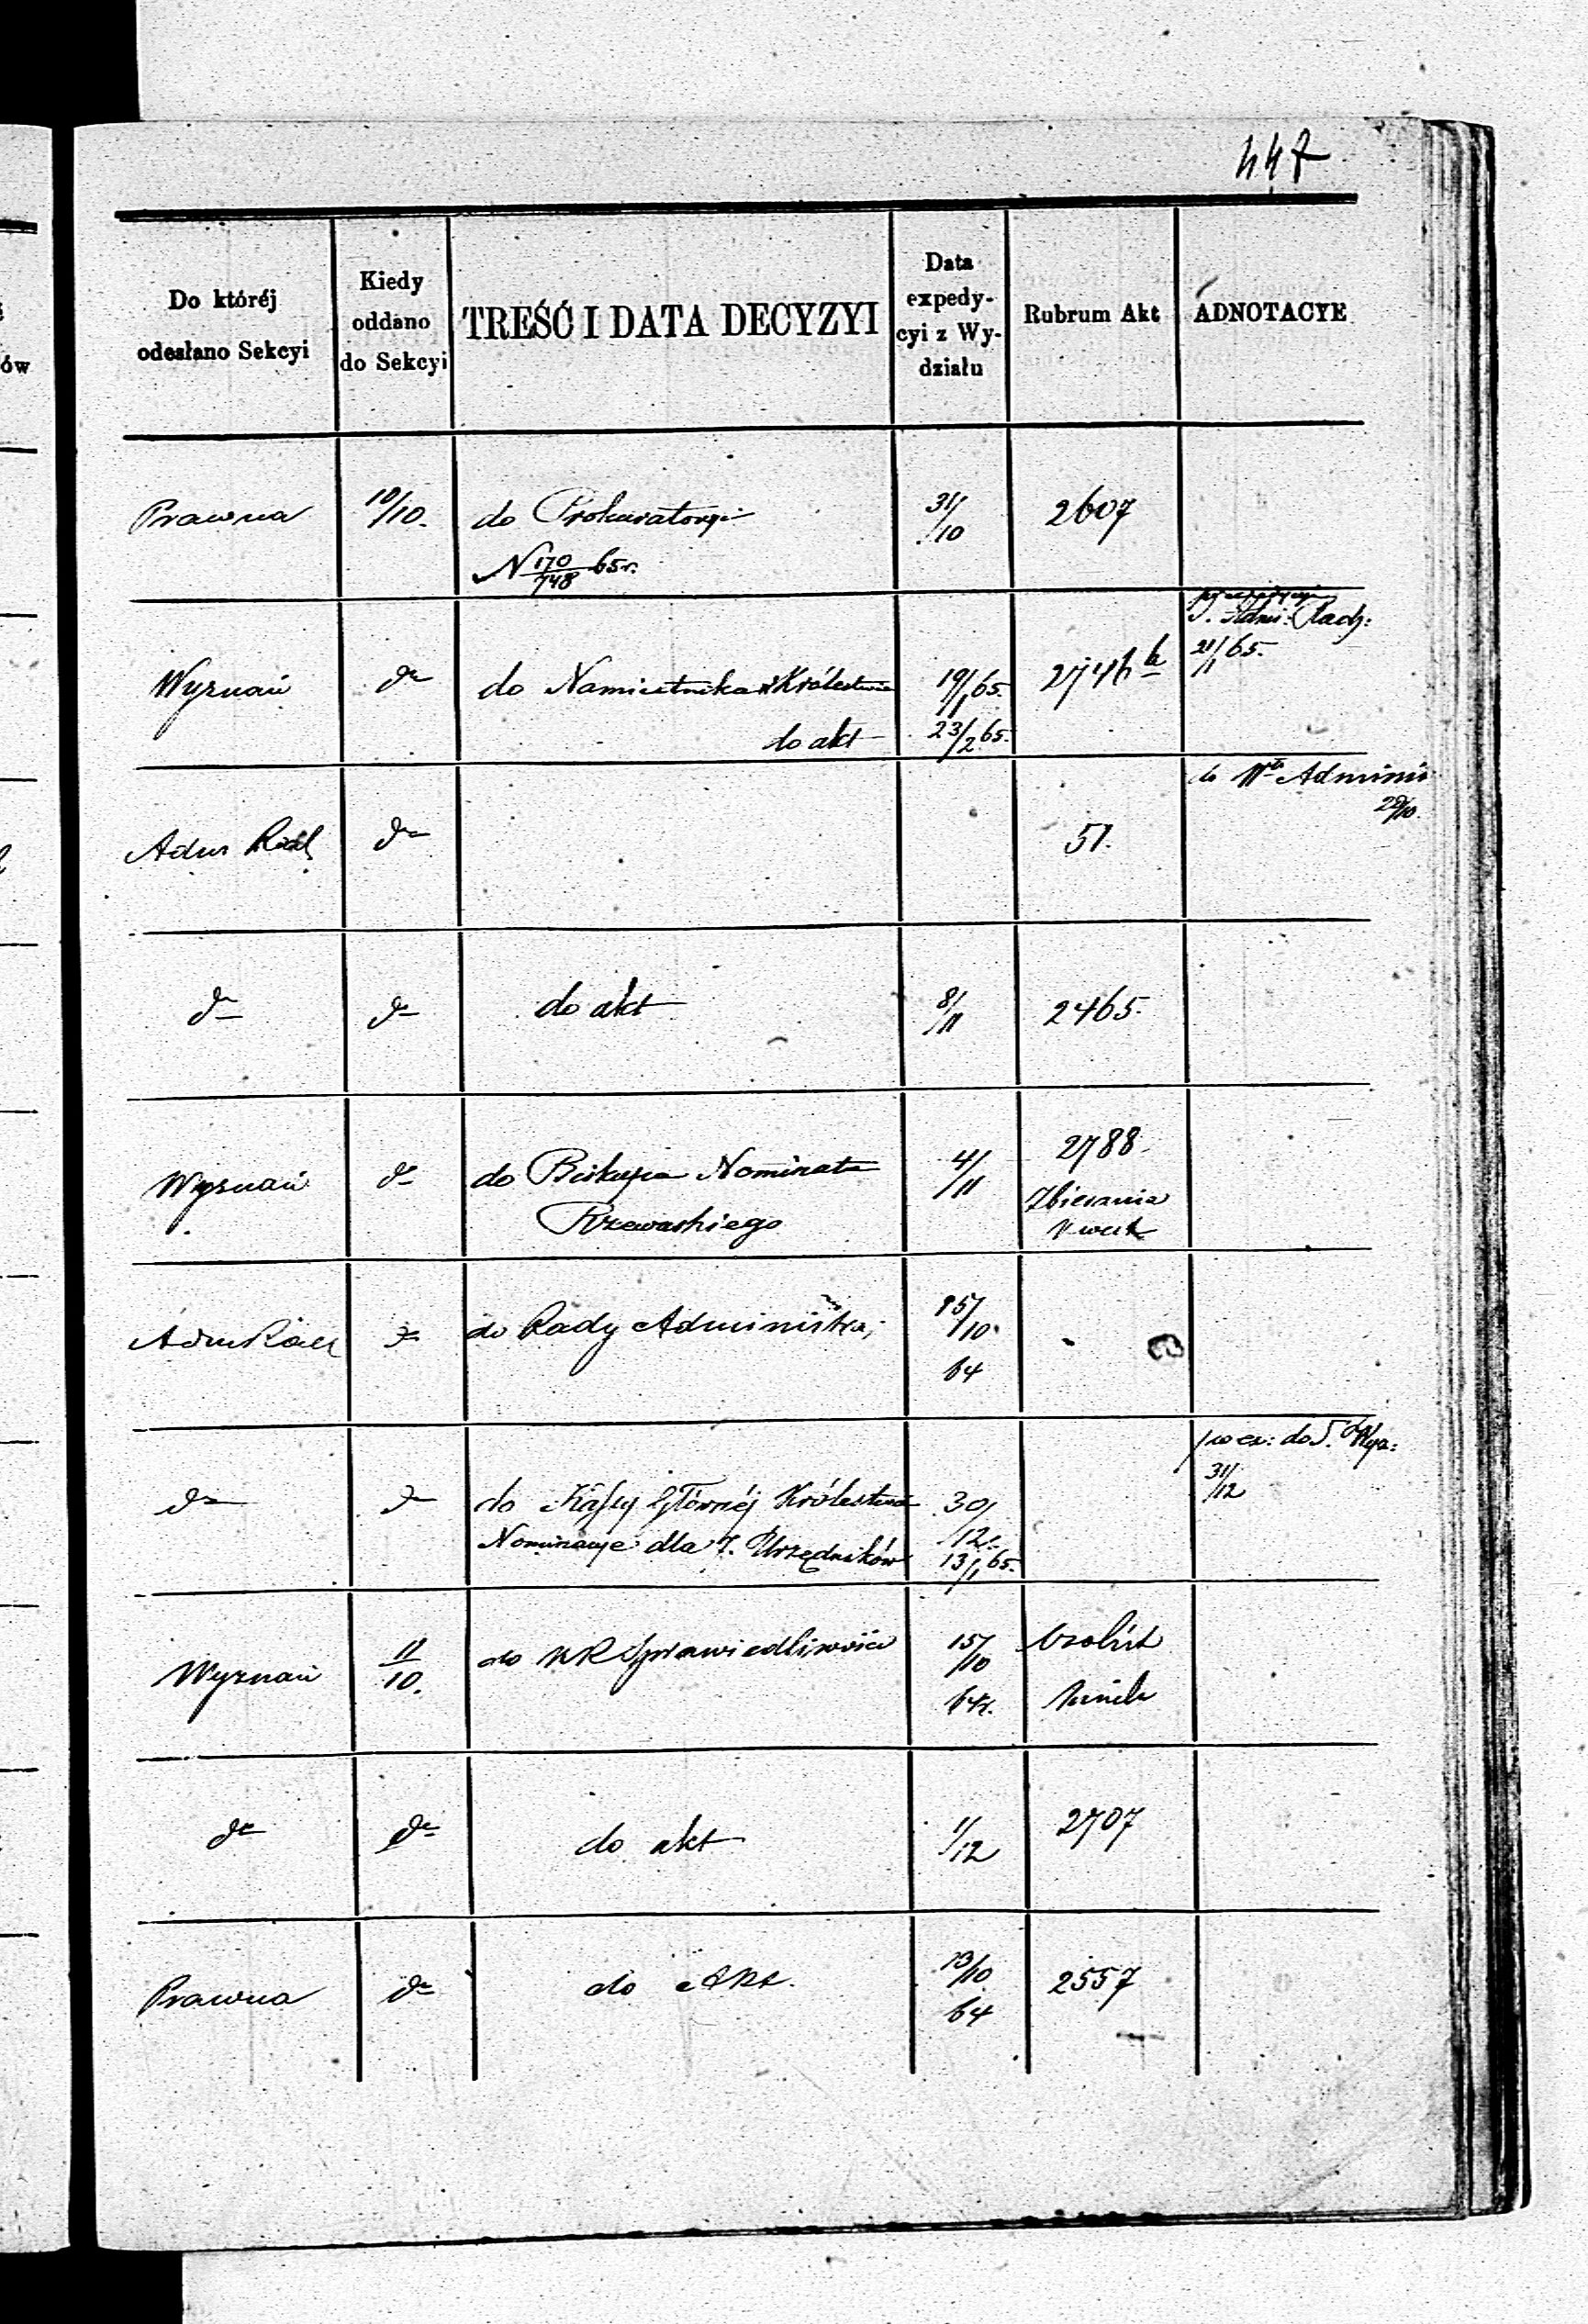 447
Do któréj
odesłano Sekcyi
Kiedy
oddano
do Sekcyi
TREŚĆ I DATA DECYZYI
Data
expedy-
cyi z Wy-
działu
Rubrum Akt
ADNOTACYE
Prawna
10/10.
do Prokuratoryi
N 170/748 65r.
31/10
2607
Wyznań
do
do Namiestnika Królestwa
19/1 65.
do akt
23/2 65.
Rach:
21/1 65.
do
51.
do Administ
29/10.
do
do
do akt
8/11
2465.
Wyznań
do
do Biskupa Nominata
Rzewuskiego
4/11
2788.
Zbierania
do Rady Administra;
15/10
64
do
do
do Kassy Głównéj Królestwa
Nominacye dla 7. Urzędników
30/12
13/1 65.
31/12
Wyznań
11/10.
do KR Sprawiedliwości
15/10
64r.
do
do
do akt
1/12
2707
Prawna
do
do Akt.
13/10
64
2557